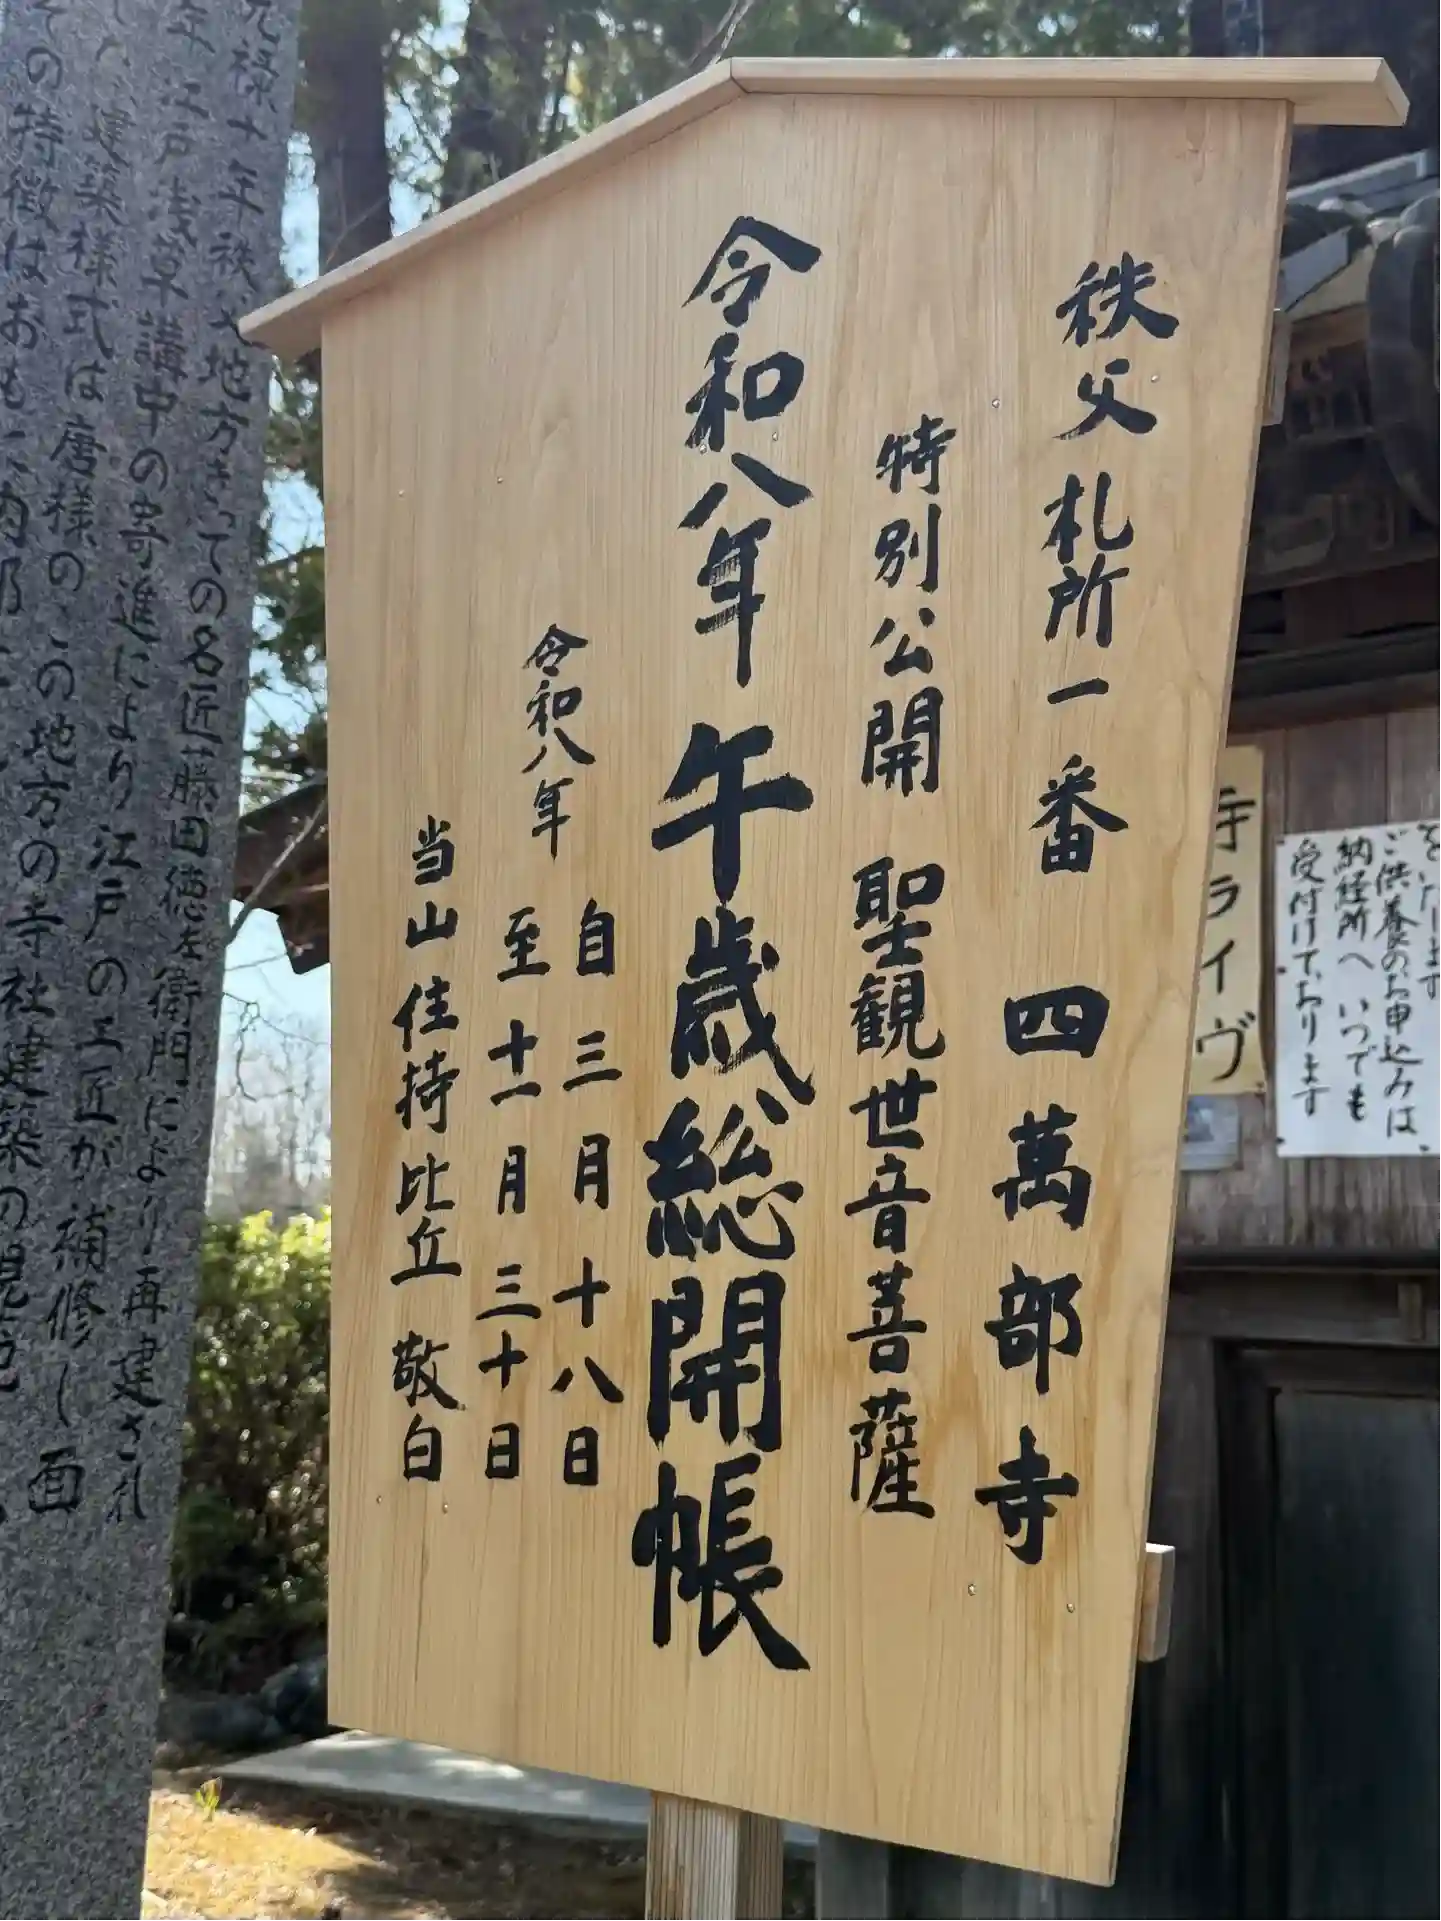 秩父札所一番 四萬部寺
特別公開 聖観世音菩薩
令和八年 午歳総開帳
令和八年
自三月十八日
至十一月三十日
当山住持比丘 敬白
寺ライヴ
ご供養のお申込みは
納経所へ いつでも
受付けております
元禄十年秩父地方きっての名匠藤田徳左衛門により再建され
江戸浅草講中の寄進により江戸の工匠が補修し
建築様式は唐様のこの地方の寺社建築の
その特徴はおも